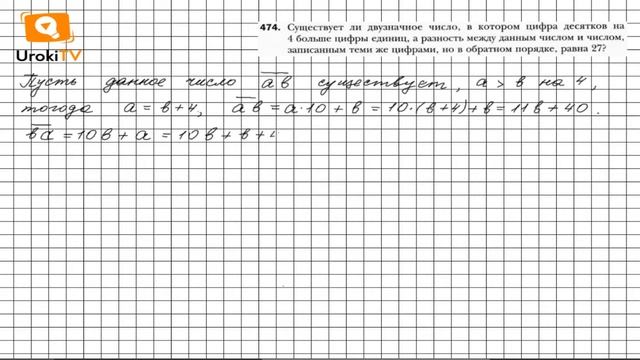 UrokiTV
474. Существует ли двузначное число, в котором цифра десятков на
4 больше цифры единиц, а разность между данным числом и числом,
записанным теми же цифрами, но в обратном порядке, равна 27?
Пусть данное число ав существует, а > в на 4,
тогода а = в + 4, ав = а·10 + в = 10·(в+4)+в = 11в + 40.
ва = 10в + а = 10в + в + 4